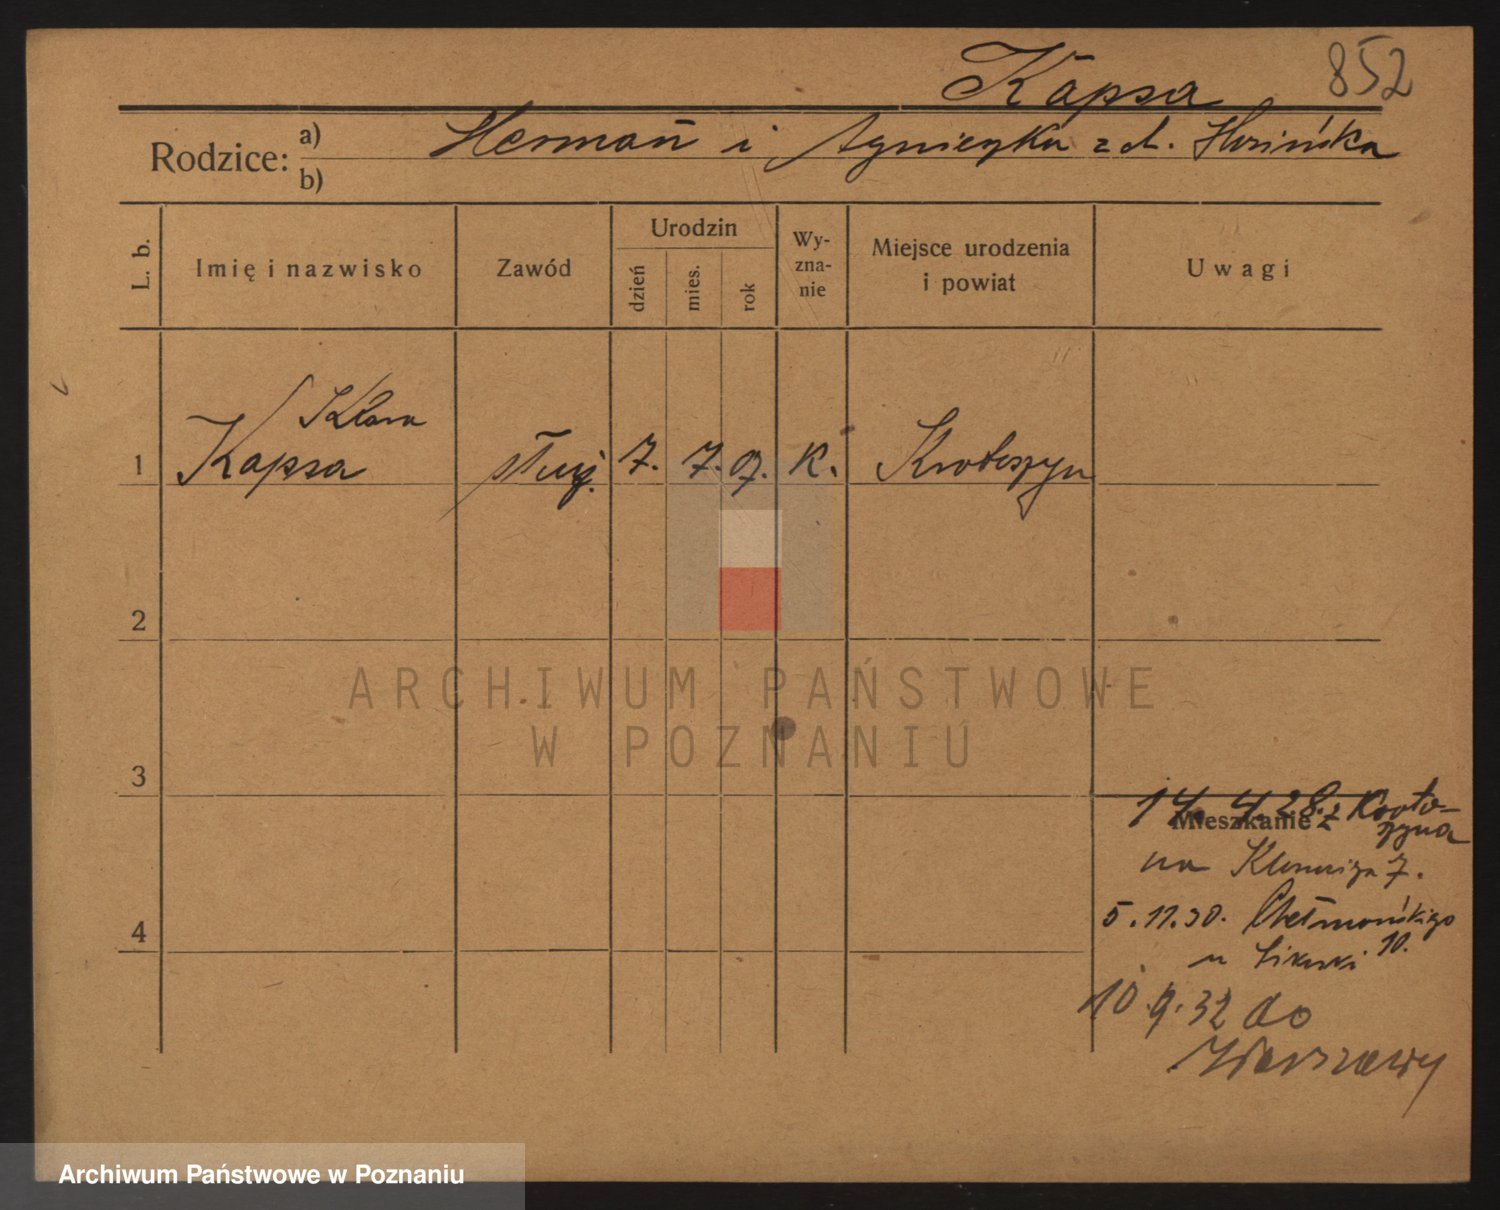 Kapsa
852
Rodzice:
a) Herman i Agnieszka z d.
b)
L. b.
Imię i nazwisko
Zawód
Urodzin
dzień
mies.
rok
Wy-
zna-
nie
Miejsce urodzenia
i powiat
Uwagi
Klara
1 Kapsa służ. 7. 7. 07. k. Krotoszyn
2
3
4
Mieszkanie
14. 4. 28. z Kroto-
szyna
na 7.
5.11.30. Chełmońskiego
u Sikorski 10.
10.9.32 do
Warszawy
ARCHIWUM PAŃSTWOWE
W POZNANIU
Archiwum Państwowe w Poznaniu